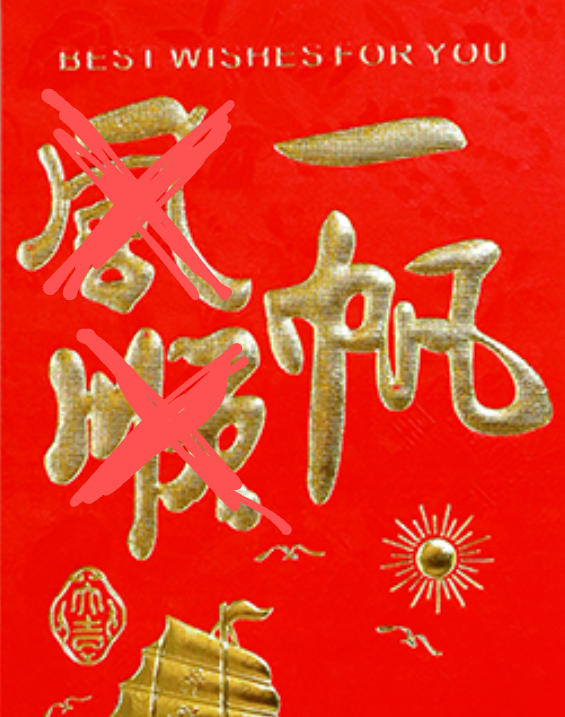 BEST WISHES FOR YOU
一帆
風順
大吉